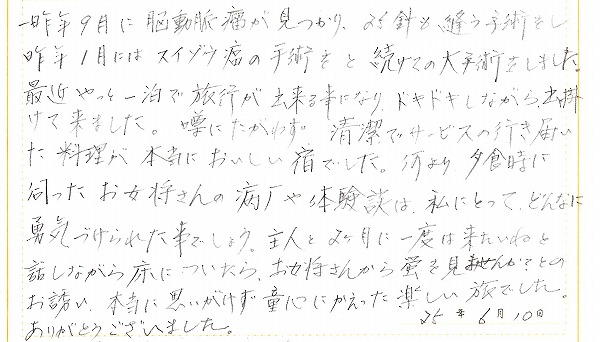 一昨年9月に脳動脈瘤が見つかり、25針も縫う手術をし
昨年1月にはスイゾウ癌の手術をと続けての大手術をしました。
最近やっと一泊で旅行が出来る事になり、ドキドキしながら出掛
けて来ました。噂にたがわず 清潔でサービスの行き届い
た料理が本当においしい宿でした。何より夕食時に
伺ったお女将さんの病歴や体験談は、私にとって、どんなに
勇気づけられた事でしょう。主人と2ヶ月に一度は来たいねと
話しながら床についたら、お女将さんから蛍を見ませんか?との
お誘い、本当に思いがけず童心にかえった楽しい旅でした。
ありがとうございました。 25年6月10日